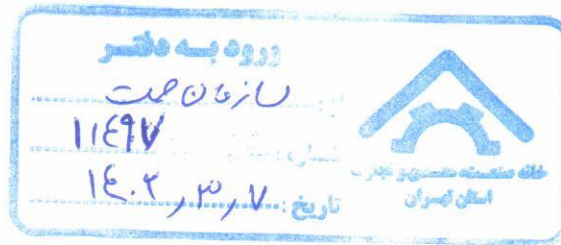 ورود به دفتر
از: سازمان صمت
شماره: ۱۱۴۹۷
تاریخ: ۱۴۰۲٫۳٫۷
خانه صنعت، معدن و تجارت
استان تهران